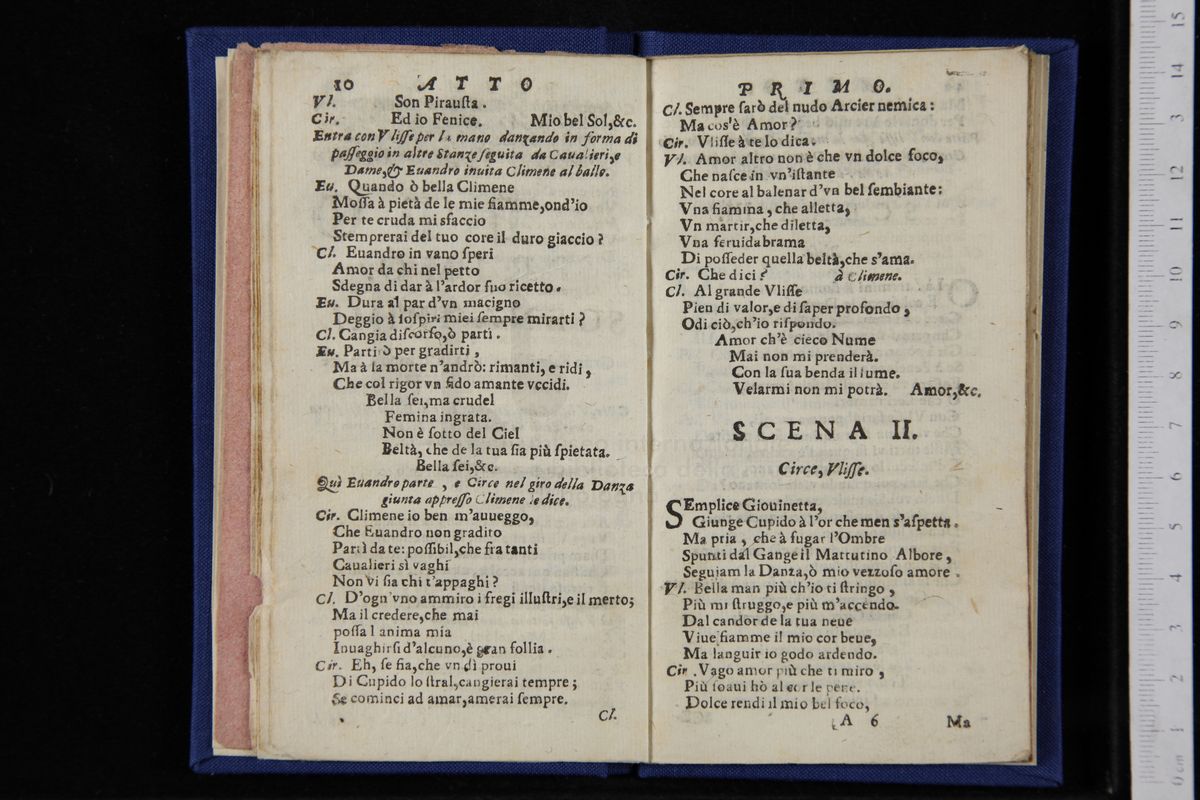 10 ATTO
Vl. Son Pirauſta.
Cir. Ed io Fenice. Mio bel Sol,&c.
Entra con Vliſſe per la mano danzando in forma di
paſſeggio in altre Stanze ſeguita da Caualieri,e
Dame,& Euandro inuita Climene al ballo.
Eu. Quando ò bella Climene
Moſſa à pietà de le mie fiamme,ond'io
Per te cruda mi sfaccio
Stemprerai del tuo core il duro giaccio?
Cl. Euandro in vano ſperi
Amor da chi nel petto
Sdegna di dar à l'ardor ſuo ricetto.
Eu. Dura al par d'vn macigno
Deggio à ioſpiri miei ſempre mirarti?
Cl. Cangia diſcorſo,ò parti.
Eu. Parti ò per gradirti,
Ma à la morte n'andrò: rimanti, e ridi,
Che col rigor vn fido amante vccidi.
Bella ſei,ma crudel
Femina ingrata.
Non è ſotto del Ciel
Beltà, che de la tua ſia più ſpietata.
Bella ſei,&c.
Quì Euandro parte, e Circe nel giro della Danza
giunta appreſſo Climene le dice.
Cir. Climene io ben m'auueggo,
Che Euandro non gradito
Partì da te: poſſibil,che fra tanti
Caualieri sì vaghi
Non vi ſia chi t'appaghi?
Cl. D'ogn'vno ammiro i fregi illuſtri,e il merto;
Ma il credere,che mai
poſſa l anima mia
Inuaghirſi d'alcuno,è gran follia.
Cir. Eh, ſe fia,che vn dì proui
Di Cupido lo ſtral,cangierai tempre;
Se cominci ad amar,amerai ſempre.
Cl.
PRIMO.
Cl. Sempre ſarò del nudo Arcier nemica:
Ma cos'è Amor?
Cir. Vliſſe à te lo dica.
Vl. Amor altro non è che vn dolce foco,
Che naſce in vn'iſtante
Nel core al balenar d'vn bel ſembiante:
Vna fiamma, che alletta,
Vn martir,che diletta,
Vna feruida brama
Di poſſeder quella beltà,che s'ama.
Cir. Che dici? à Climene.
Cl. Al grande Vliſſe
Pien di valor,e di ſaper profondo,
Odi ciò,ch'io riſpondo.
Amor ch'è cieco Nume
Mai non mi prenderà.
Con la ſua benda il lume.
Velarmi non mi potrà. Amor,&c.
SCENA II.
Circe, Vliſſe.
SEmplice Giouinetta,
Giunge Cupido à l'or che men s'aſpetta.
Ma pria, che à fugar l'Ombre
Spunti dal Gange il Mattutino Albore,
Seguiam la Danza,ò mio vezzoſo amore.
Vl. Bella man più ch'io ti ſtringo,
Più mi ſtruggo,e più m'accendo.
Dal candor de la tua neue
Viue fiamme il mio cor beue,
Ma languir io godo ardendo.
Cir. Vago amor più che ti miro,
Più ſoaui hò al cor le pene.
Dolce rendi il mio bel foco,
A 6 Ma